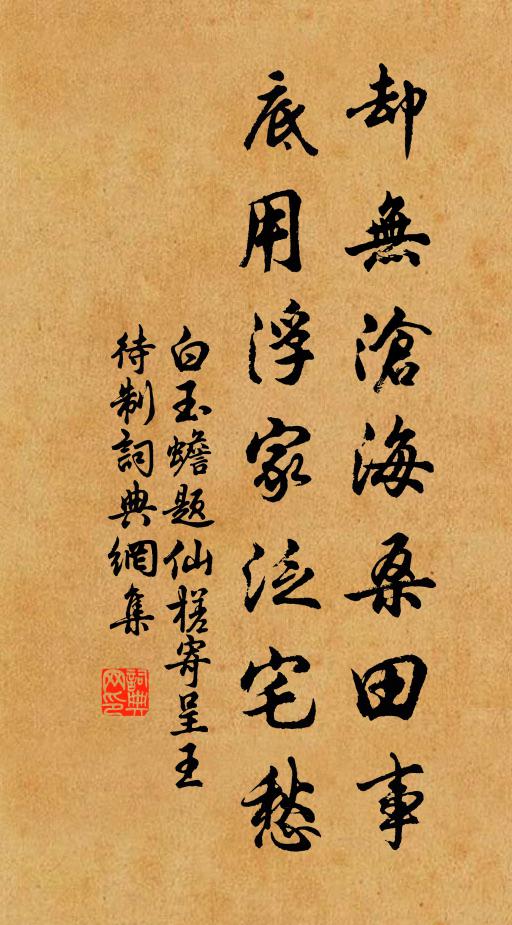 却無滄海桑田事
底用浮家泛宅愁
白玉蟾題仙槎寄呈王
待制詞典網集
詞典
网印